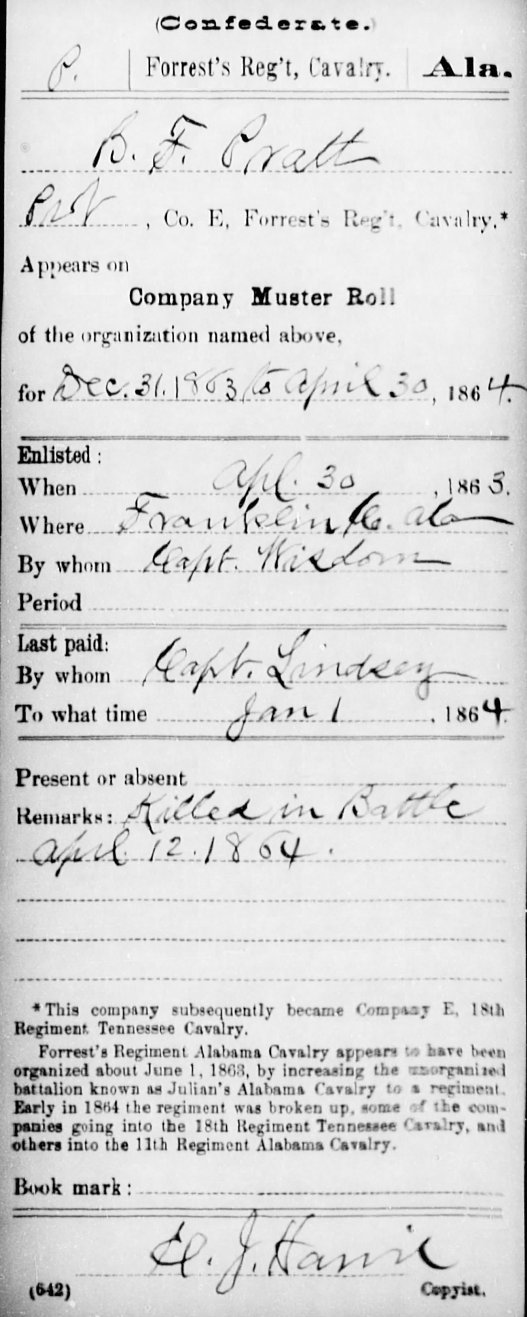 (Confederate.)
P. | Forrest's Reg't, Cavalry. | Ala.
B. F. Pratt
Pvt, Co. E, Forrest's Reg't, Cavalry.*
Appears on
Company Muster Roll
of the organization named above,
for Dec. 31. 1863 to April 30, 1864.
Enlisted:
When Apl. 30, 1863.
Where Franklin Co. Ala
By whom Capt. Wisdom
Period
Last paid:
By whom Capt. Lindsey
To what time Jan 1, 1864.
Present or absent
Remarks: Killed in Battle
April 12. 1864.
*This company subsequently became Company E, 18th
Regiment Tennessee Cavalry.
Forrest's Regiment Alabama Cavalry appears to have been
organized about June 1, 1863, by increasing the unorganized
battalion known as Julian's Alabama Cavalry to a regiment.
Early in 1864 the regiment was broken up, some of the com-
panies going into the 18th Regiment Tennessee Cavalry, and
others into the 11th Regiment Alabama Cavalry.
Book mark:
J.
(642) Copyist.